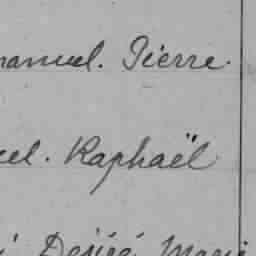 manuel. Pierre.
el. Raphaël
Désiré Marie